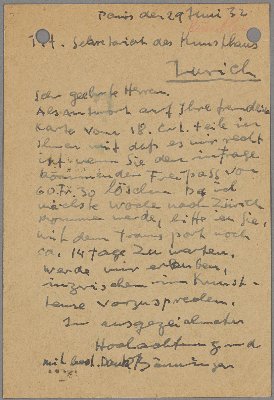 Paris den 29 Juni 32
Tit. Sekretariat des Kunsthaus
Zürich
Sehr geehrte Herren.
Als Antwort auf Ihre
Karte vom 18. Crt. teile ich
Ihnen mit daß es mir recht
ist wenn Sie den infrage
kommenden Freipass von
60. Fr. 30 löschen. Da ich
nächste Woche nach Zürich
kommen werde, bitte ich Sie,
mit dem transport noch
ca. 14 tage zu warten.
werde mir erlauben,
inzwischen im Kunst-
hause vorzusprechen.
In ausgezeichneter
Hochachtung und
mit best. Dank Bänninger